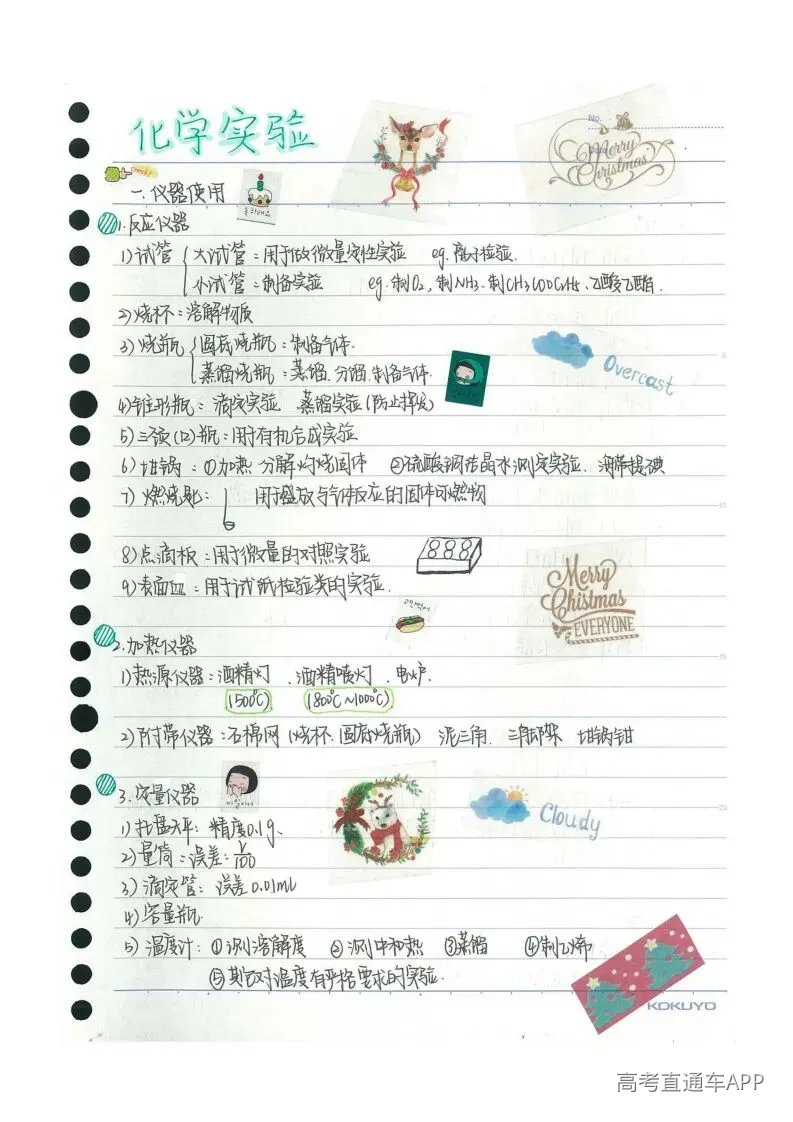 化学实验
No.
Merry Christmas
check!
一.仪器使用
1.反应仪器
1)试管 大试管:用于做微量定性实验 eg.离子检验.
小试管:制备实验 eg.制O2,制NH3.制CH3COOC2H5、乙酸乙酯.
2)烧杯:溶解物质
3)烧瓶 圆底烧瓶:制备气体.
蒸馏烧瓶:蒸馏、分馏、制备气体.
Overcast
4)锥形瓶:滴定实验 蒸馏实验(防止挥发)
5)三颈(口)瓶:用于有机合成实验
6)坩锅:①加热 分解灼烧固体 ②硫酸铜结晶水测定实验、海带提碘
7)燃烧匙: 用于盛放与气体反应的固体可燃物
8)点滴板:用于微量的对照实验
9)表面皿:用于试纸检验类的实验.
Merry
Chistmas
EVERYONE
2.加热仪器
1)热源仪器:酒精灯、酒精喷灯、电炉.
(500℃) (800℃~1000℃)
2)附带仪器:石棉网(烧杯.圆底烧瓶) 泥三角. 三脚架 坩锅钳
3.定量仪器
Cloudy
1)托盘天平:精度0.1g、
2)量筒:误差:V/100
3)滴定管:误差0.01mL
4)容量瓶.
5)温度计:①测溶解度 ②测中和热 ③蒸馏 ④制乙烯
⑤其它对温度有严格要求的实验.
KOKUYO
高考直通车APP